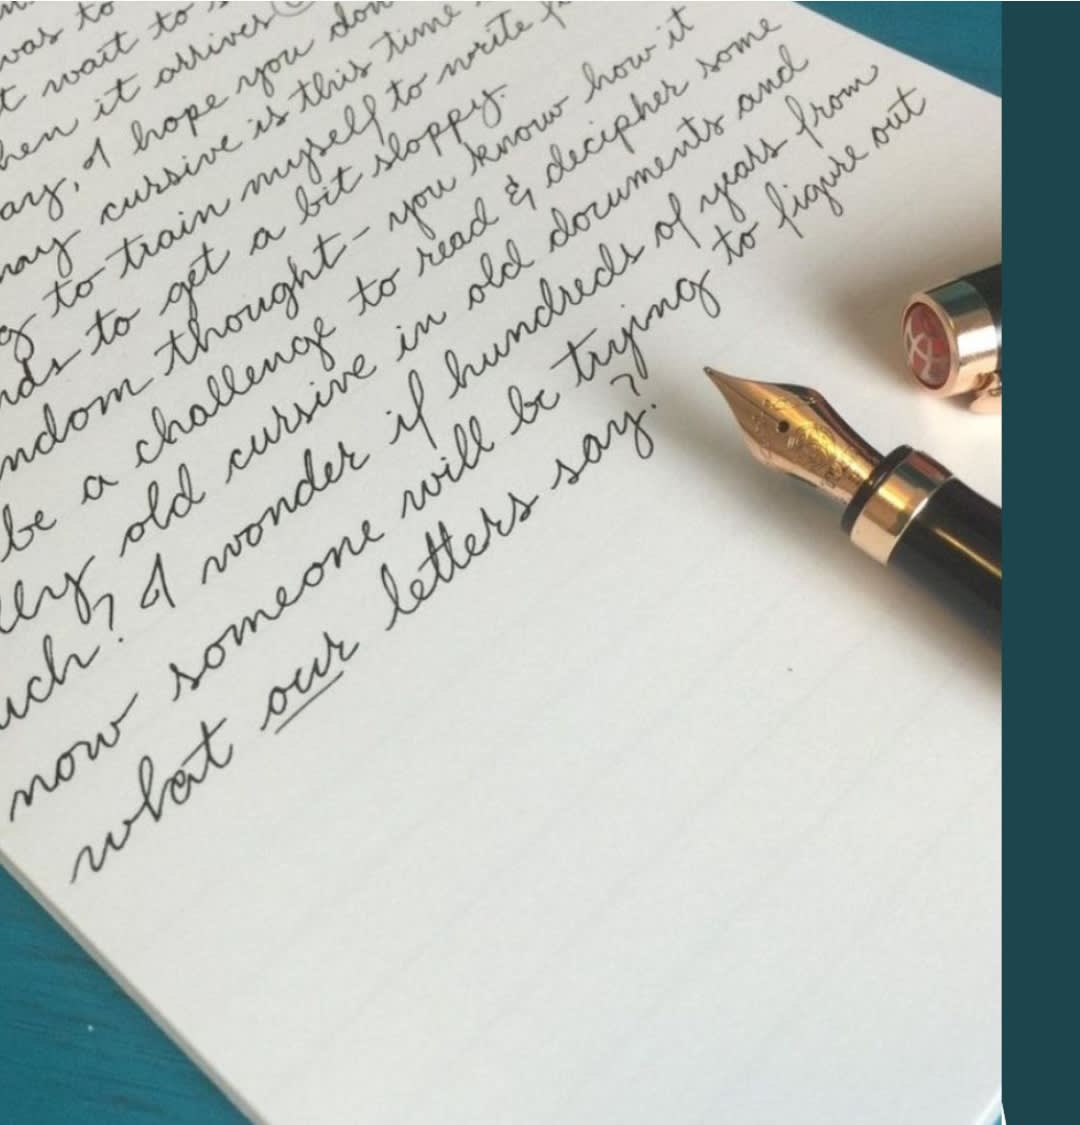 was to
t wait to
hen it arrives
ary, I hope you don
may cursive is this time
g to train myself to write f
nds to get a bit sloppy.
ndom thought - you know how it
be a challenge to read & decipher some
lly old cursive in old documents and
uch? I wonder if hundreds of years from
now someone will be trying to figure out
what our letters say?